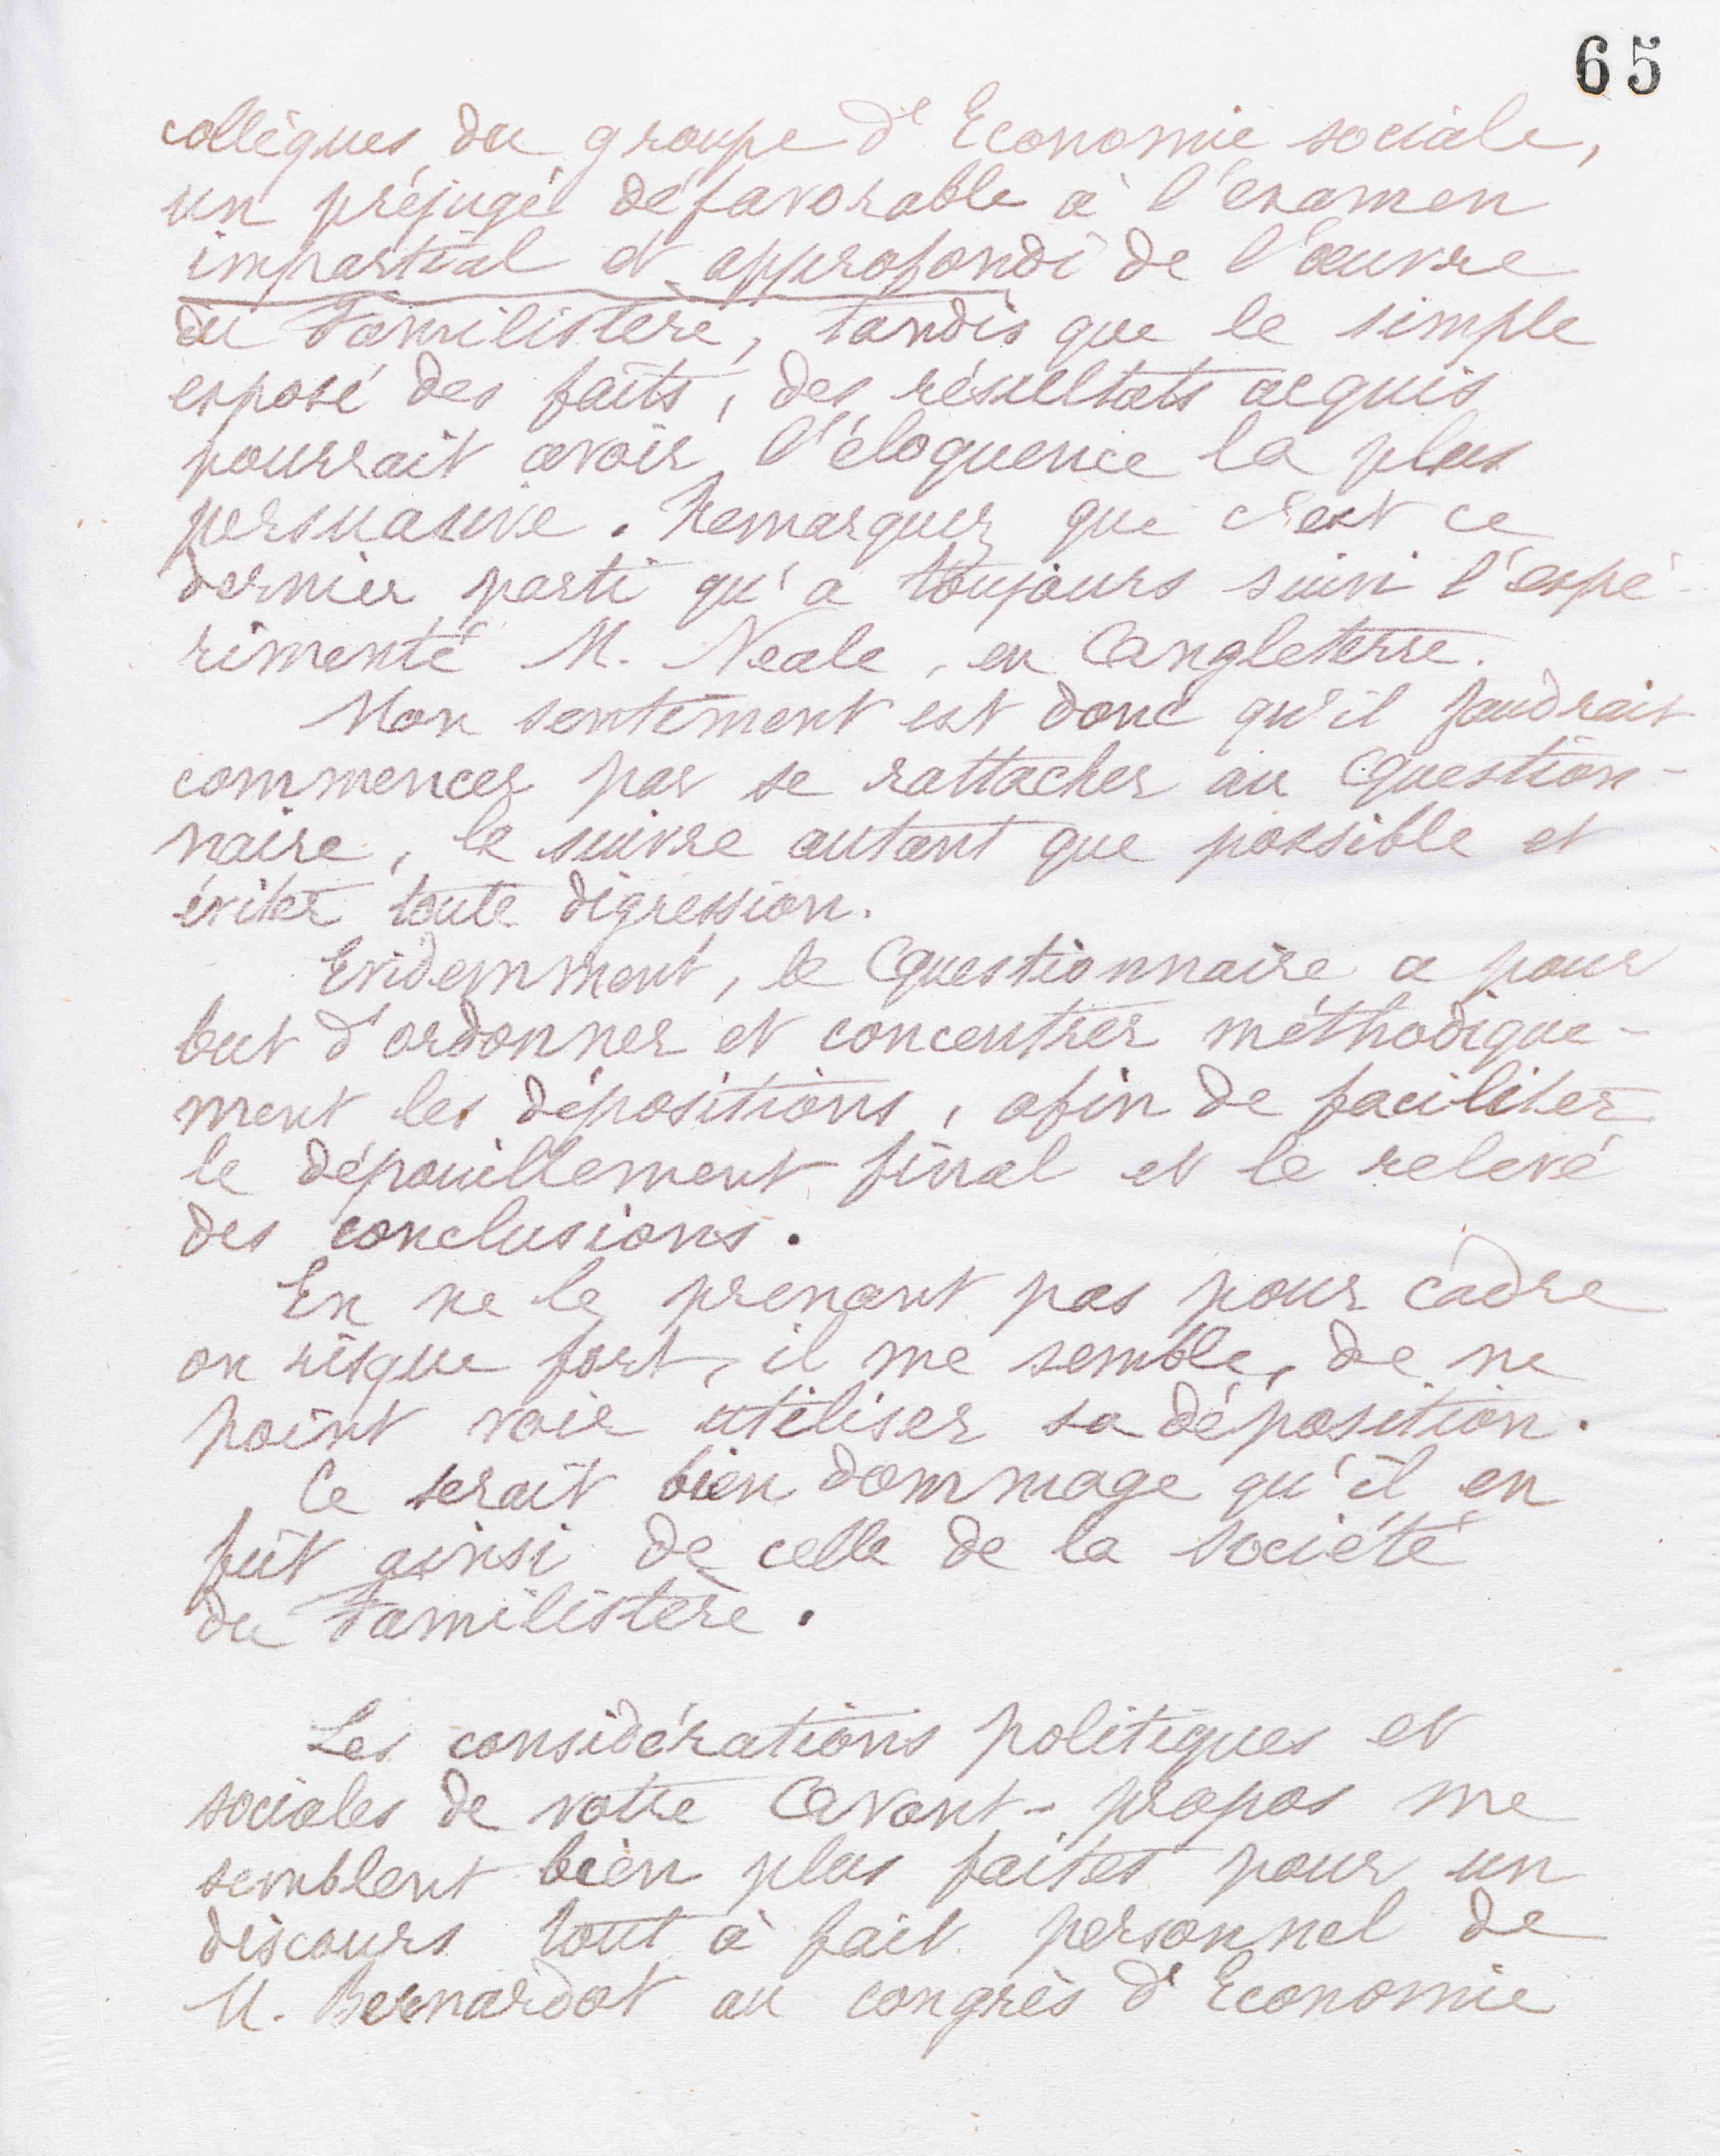 65
collègues du groupe d'Economie sociale,
un préjugé défavorable à l'examen
impartial et approfondi de l'œuvre
du Familistère, tandis que le simple
exposé des faits, des résultats acquis
pourrait avoir l'éloquence la plus
persuasive. Remarquez que c'est ce
dernier parti qu'a toujours suivi l'expé-
rimenté M. Neale, en Angleterre.
Mon sentiment est donc qu'il faudrait
commencer par se rattacher au Question-
naire, le suivre autant que possible et
éviter toute digression.
Evidemment, le Questionnaire a pour
but d'ordonner et concentrer méthodique-
ment les dépositions, afin de faciliter
le dépouillement final et le relevé
des conclusions.
En ne le prenant pas pour cadre
on risque fort, il me semble, de ne
point voir utiliser sa déposition.
Ce serait bien dommage qu'il en
fût ainsi de celle de la Société
du Familistère.
Les considérations politiques et
sociales de votre Avant-propos me
semblent bien plus faites pour un
discours tout à fait personnel de
M. Bernardot au congrès d'Economie